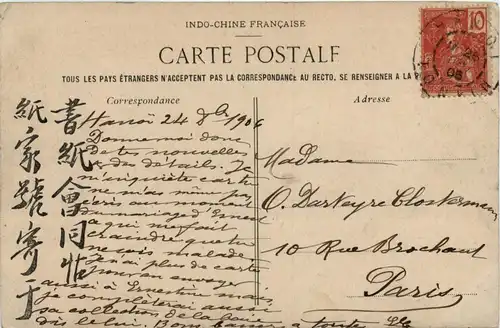 INDO-CHINE FRANÇAISE
CARTE POSTALE
TOUS LES PAYS ÉTRANGERS N'ACCEPTENT PAS LA CORRESPONDANCE AU RECTO, SE RENSEIGNER A LA
10
Correspondance
Adresse
Hanoï 24 1906
Donnez moi donc
de tes nouvelles
des détails. Je
m'inquiète car
ne m'as même pas
écris au moment
du mariage d'Ernest
qui me fait
craindre que tu
ne sois malade
j'ai plus de carte
pour envoyer
aussi à Ernestine mais
je compléterai aussi
sa collection
dis le lui. Bons baisers à toute
Madame
O. Darteyre Closterman
10 Rue Brochant
Paris
書紙會同
紙家號寄于